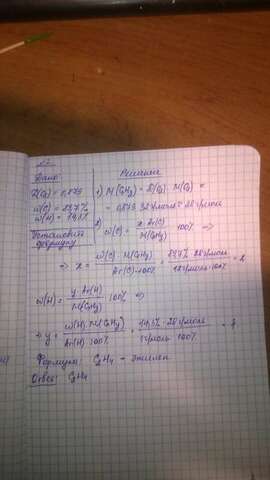 Дано:
D(O₂) = 0,875
w(C) = 85,7%
w(H) = 14,3%
Установить
формулу
Решение
1) M(CxHy) = D(O₂) · M(O₂) =
= 0,875 · 32 г/моль = 28 г/моль
2) w(C) = x · Ar(C) / M(CxHy) · 100% =>
=> x = w(C) · M(CxHy) / Ar(C) · 100% = 85,7% · 28 г/моль / 12 г/моль · 100% = 2
w(H) = y · Ar(H) / M(CxHy) · 100% =>
=> y = w(H) · M(CxHy) / Ar(H) · 100% = 14,3% · 28 г/моль / 1 г/моль · 100% = 4
Формула: C₂H₄ - этилен
Ответ: C₂H₄